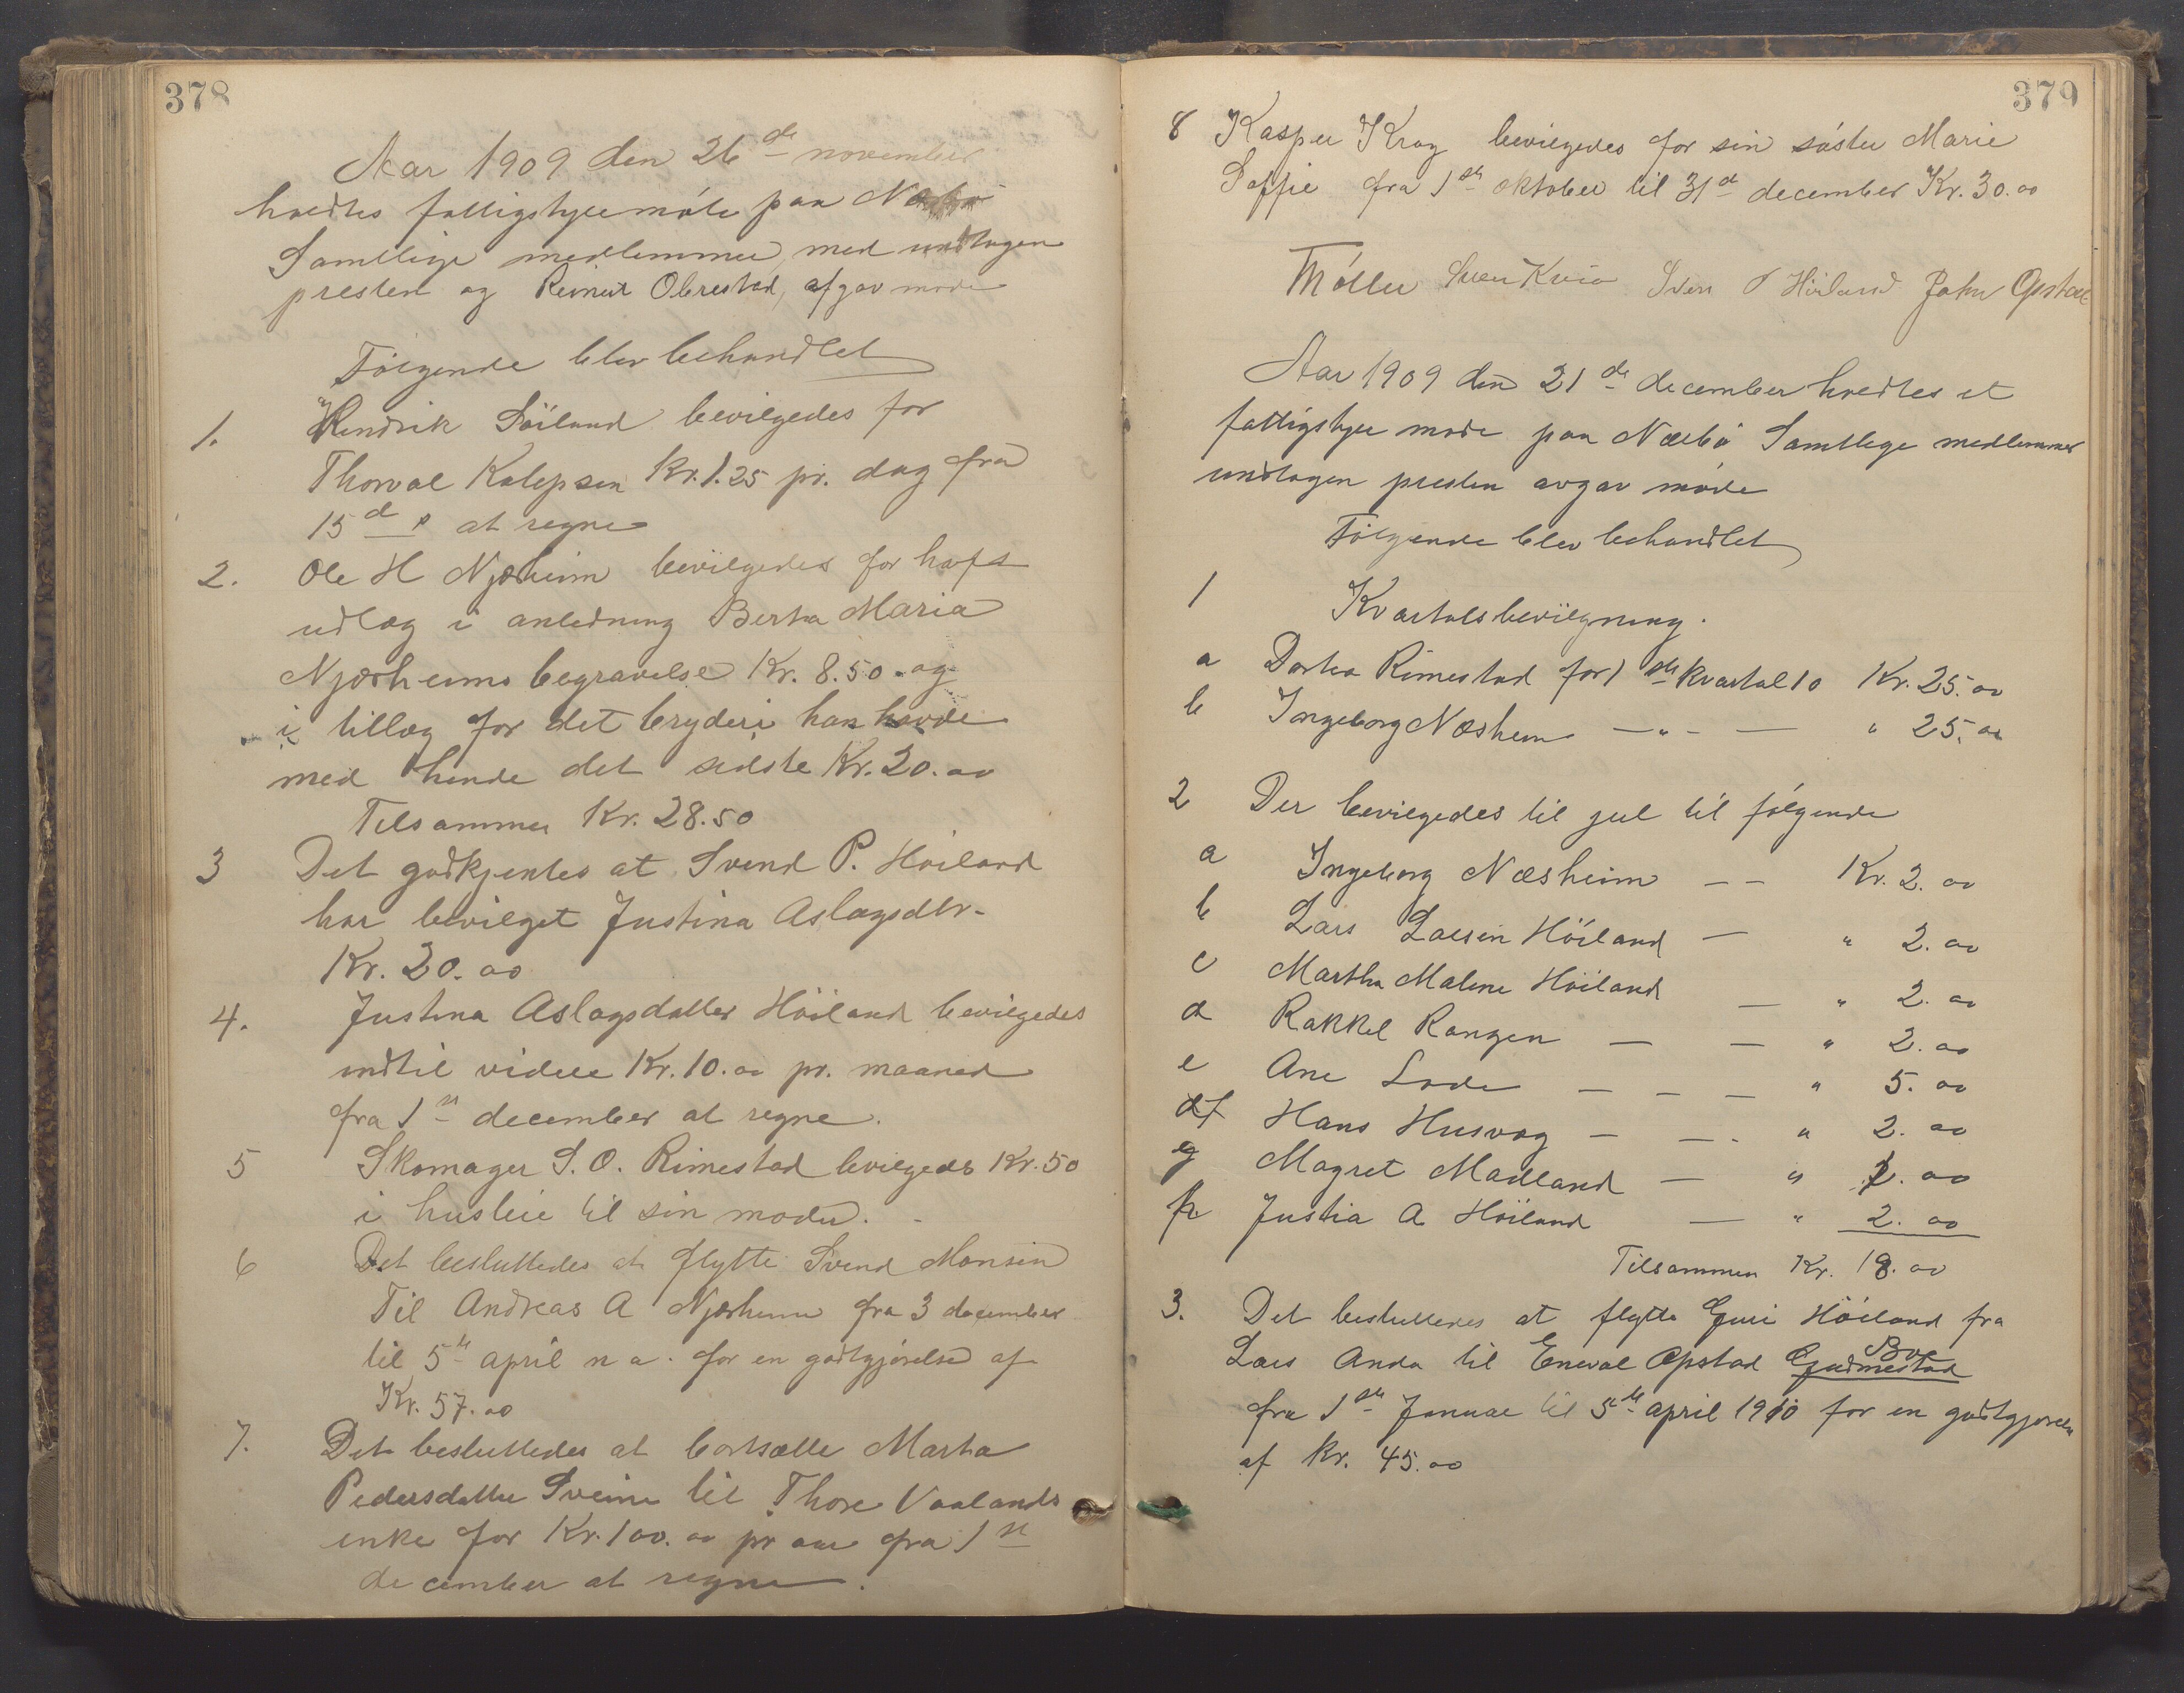 378
Aar 1909 den 26de november
holdtes fattigstyremöte paa Nærbö
Samtlige medlemmer med undtagen
presten og Reinert Obrestad, afgav möde
Følgende blev behandlet
1. Hendrik Söiland bevilgedes for
Thorval Kalepsen Kr. 1.25 pr. dag fra
15d at regne
2. Ole H Njærheim bevilgedes for hafst
udlæg i anledning Berta Maria
Njærheims begravelse Kr. 8.50 og
i tillæg for det bryderi han havde
med hende det sidste Kr. 20.00
Tilsammen Kr. 28.50
3 Det godkjentes at Svend P. Höiland
har bevilget Justina Aslagsdtr.
Kr. 20.00
4. Justina Aslagsdatter Höiland bevilgedes
indtil videre Kr. 10.00 pr. maaned
fra 1ste december at regne.
5 Skomager S. O. Rimestad bevilgeds Kr. 50
i husleie til sin moder.
6 Det besluttedes at flytte Svend Monsen
Til Andreas A Njærheim fra 3 december
til 5te april n a. for en godtgjörelse af
Kr. 57.00
7. Det besluttedes at bortsætte Marta
Pedersdatter Sveine til Thore Vaalands
enke for Kr. 100.00 pr aar fra 1ste
december at regne.
379
8 Kasper Krag bevilgedes for sin söster Marie
Soffie fra 1ste oktober til 31te december Kr. 30.00
Möller Sven Kvia Sven P Höiland John Opstad
Aar 1909 den 21de december holdtes et
fattigstyre möde paa Nærbö Samtlige medlemmer
undtagen presten avgav möde
Følgende blev behandlet
1 Kvartalsbevilgning.
a Dortea Rimestad for 1ste kvartal 10 Kr. 25.00
b Ingeborg Næsheim — " — " 25.00
2 Der bevilgedes til jul til følgende
a Ingeborg Næsheim — — Kr. 2.00
b Lars Larsen Höiland — " 2.00
c Martha Malene Höiland — " 2.00
d Rakkel Rangen — — " 2.00
e Ane Lode — — — " 5.00
f Hans Husvæg — — " 2.00
g Magret Madland — " 2.00
h Justia A Höiland — " 2.00
Tilsammen Kr. 19.00
3. Det besluttedes at flytte Guri Höiland fra
Lars Anda til Eneval Opstad Gudmestad Boe
fra 1ste Januar til 5te april 1910 for en godtgjörelse
af kr. 45.00